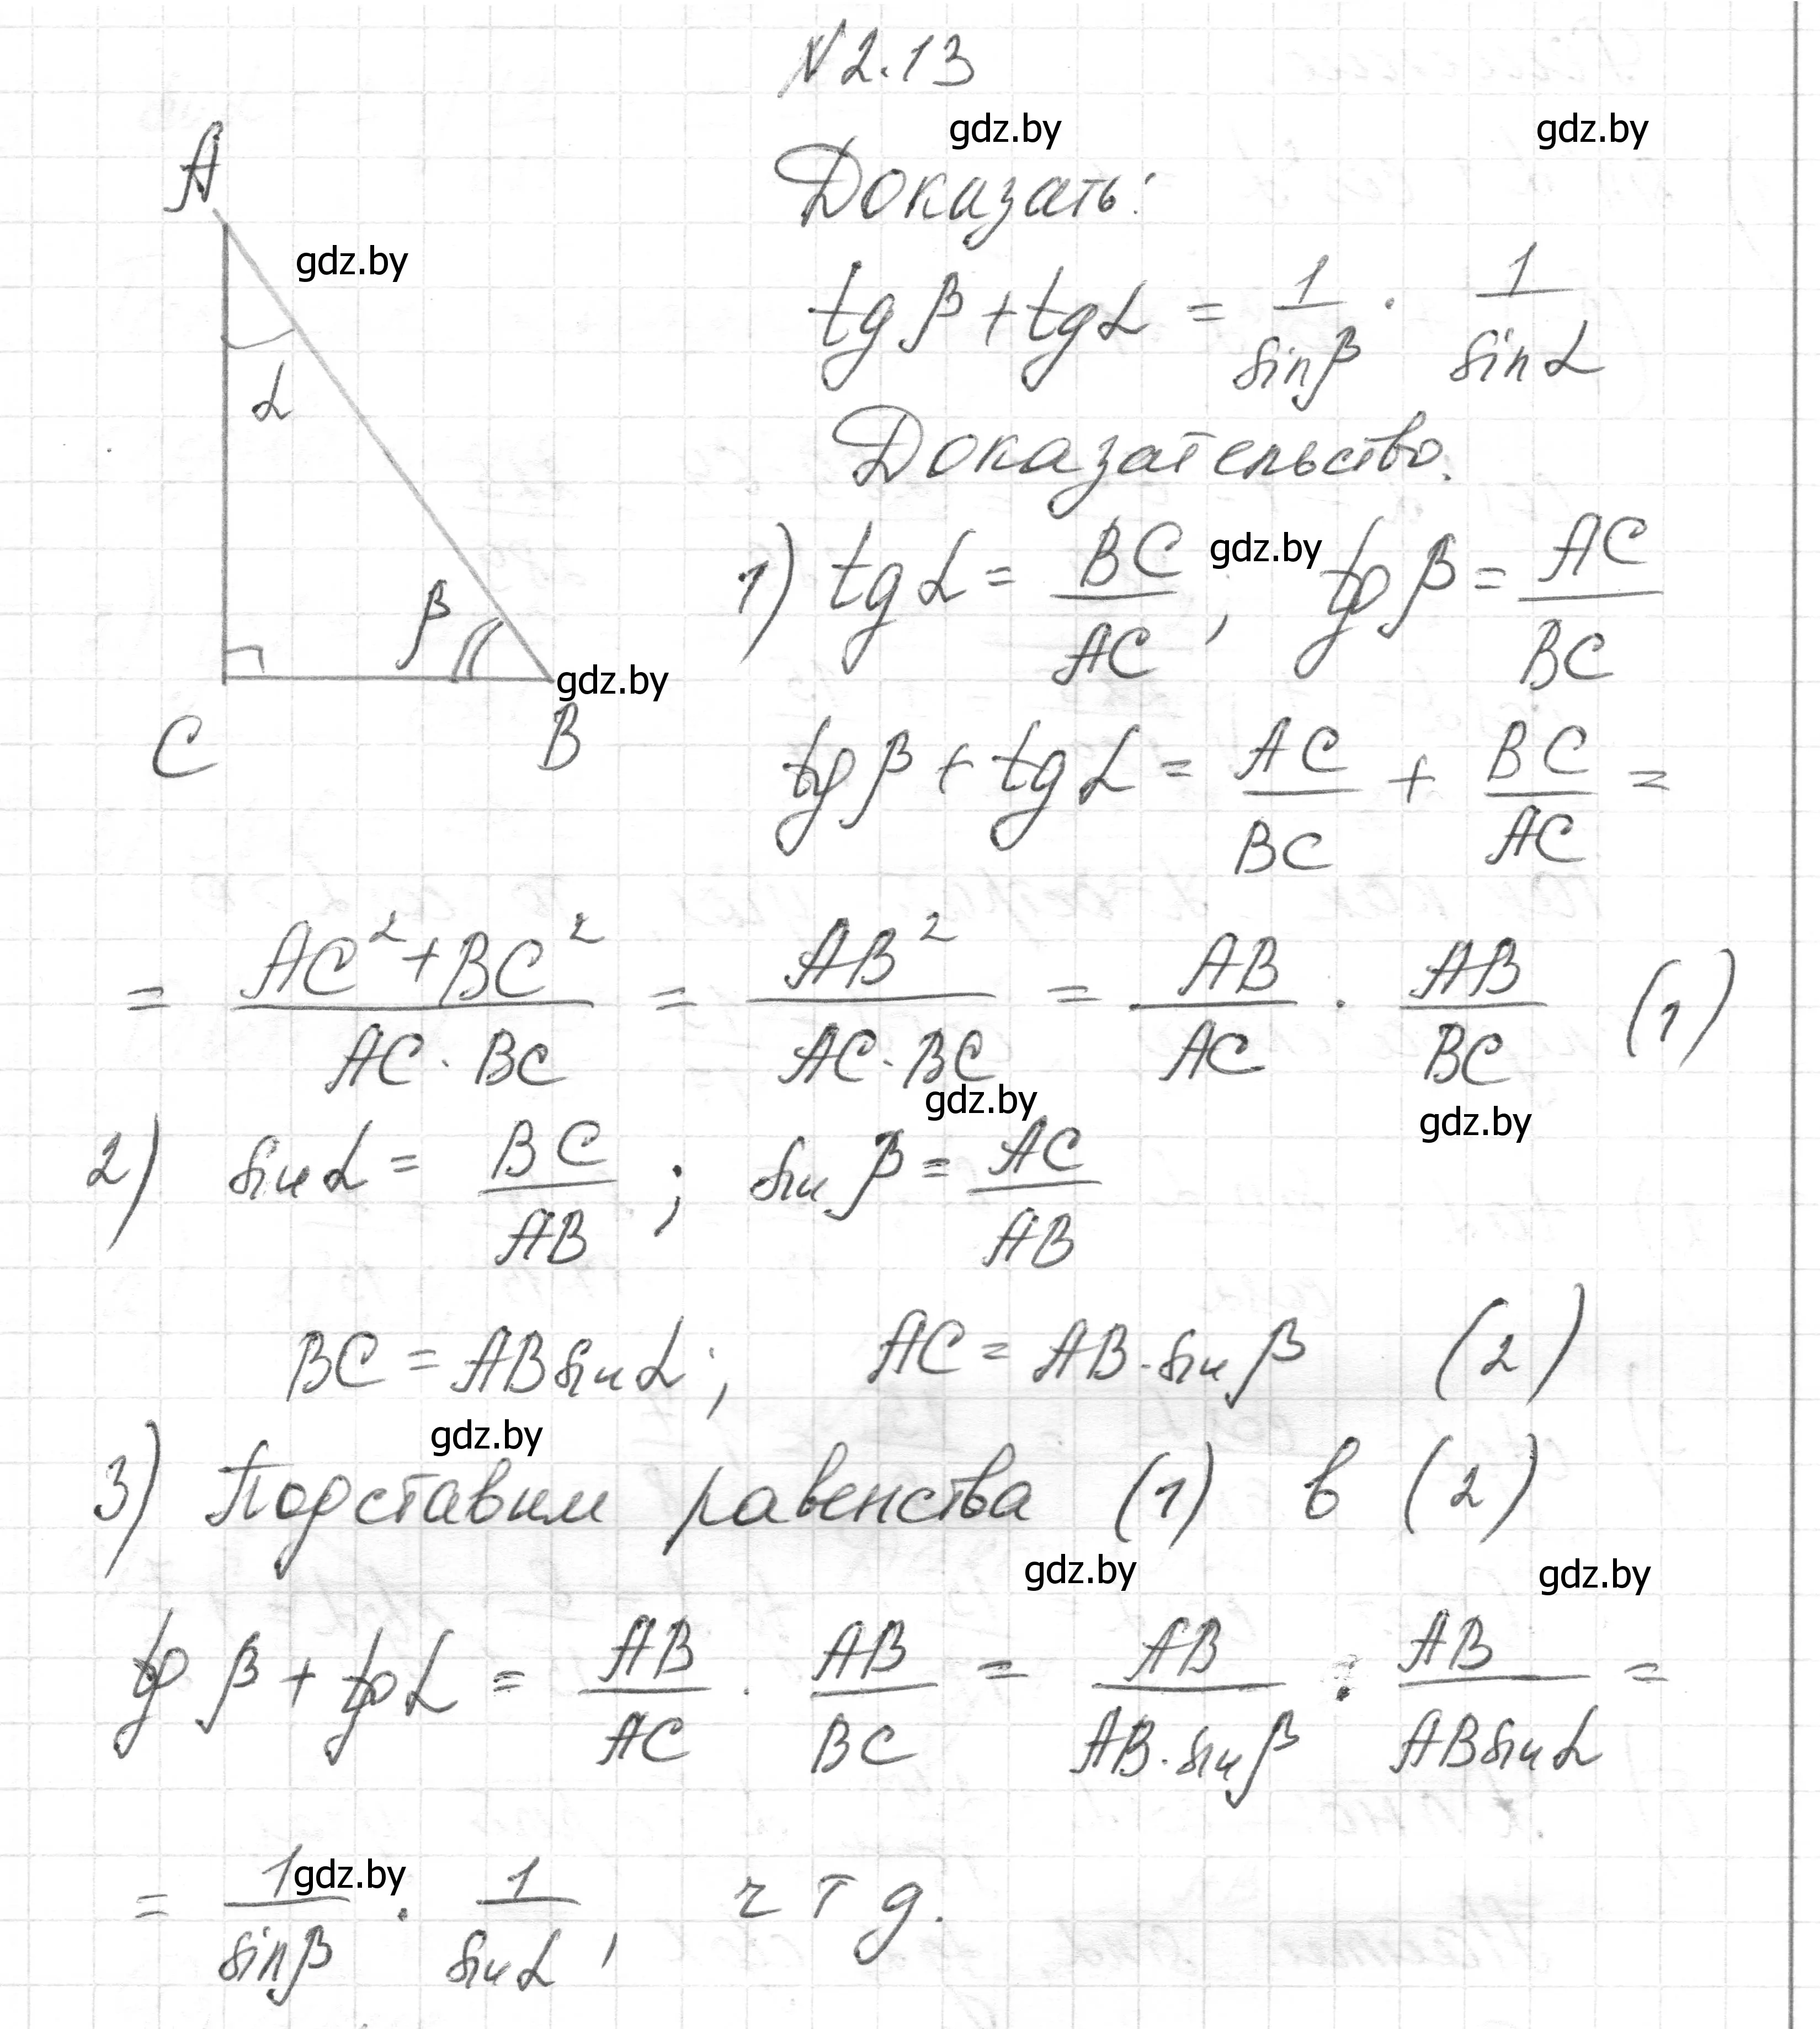 N 2.13
gdz.by gdz.by
A
Доказать:
gdz.by
tg β + tg α = 1/sin β · 1/sin α
α
Доказательство.
1) tg α = BC/AC ; tg β = AC/BC
gdz.by
β
gdz.by
C B
tg β + tg α = AC/BC + BC/AC =
= (AC² + BC²)/(AC · BC) = AB²/(AC · BC) = AB/AC · AB/BC (1)
gdz.by gdz.by
2) sin α = BC/AB ; sin β = AC/AB
BC = AB sin α ; AC = AB · sin β (2)
gdz.by
3) Подставим равенства (1) в (2)
gdz.by gdz.by
tg β + tg α = AB/AC · AB/BC = AB/(AB · sin β) : AB/(AB sin α) =
= 1/sin β · 1/sin α , ч т д.
gdz.by